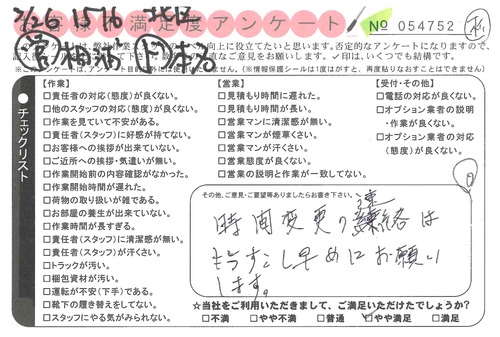 2/26 1576 北区
お客様満足度アンケート
№ 054752
□責任者の対応(態度)が良くない。
□他のスタッフの対応(態度)が良くない。
□作業を見ていて不安がある。
□責任者(スタッフ)に好感が持てない。
□お客様への挨拶が出来ていない。
□ご近所への挨拶・気遣いが無い。
□作業開始前の内容確認がなかった。
□作業開始時間が遅れた。
□荷物の取り扱いが雑である。
□お部屋の養生が出来ていない。
□作業時間が長すぎる。
□責任者(スタッフ)に清潔感が無い。
□責任者(スタッフ)が汗くさい。
□トラックが汚い。
□梱包資材が汚い。
□運転が不安(下手)である。
□靴下の履き替えをしてない。
□スタッフにやる気がみられない。
チェックリスト
【作業】
【営業】
□見積もり時間に遅れた。
□見積もり時間が長い。
□営業マンに清潔感が無い。
□営業マンが煙草くさい。
□営業マンが汗くさい。
□営業態度が良くない。
□営業の説明と作業が一致してない。
【受付・その他】
□電話の対応が良くない。
□オプション業者の説明
・作業が良くない。
□オプション業者の対応
(態度)が良くない。
その他、ご意見・ご要望等ありましたらお書き下さい。
時間変更の連絡は
もう少し早めにお願い
します。
☆当社をご利用いただきまして、ご満足いただけたでしょうか?
□不満 □やや不満 □普通 ☑やや満足 □満足